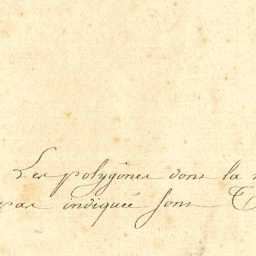 Les polygônes dont la
pas indiquée sont